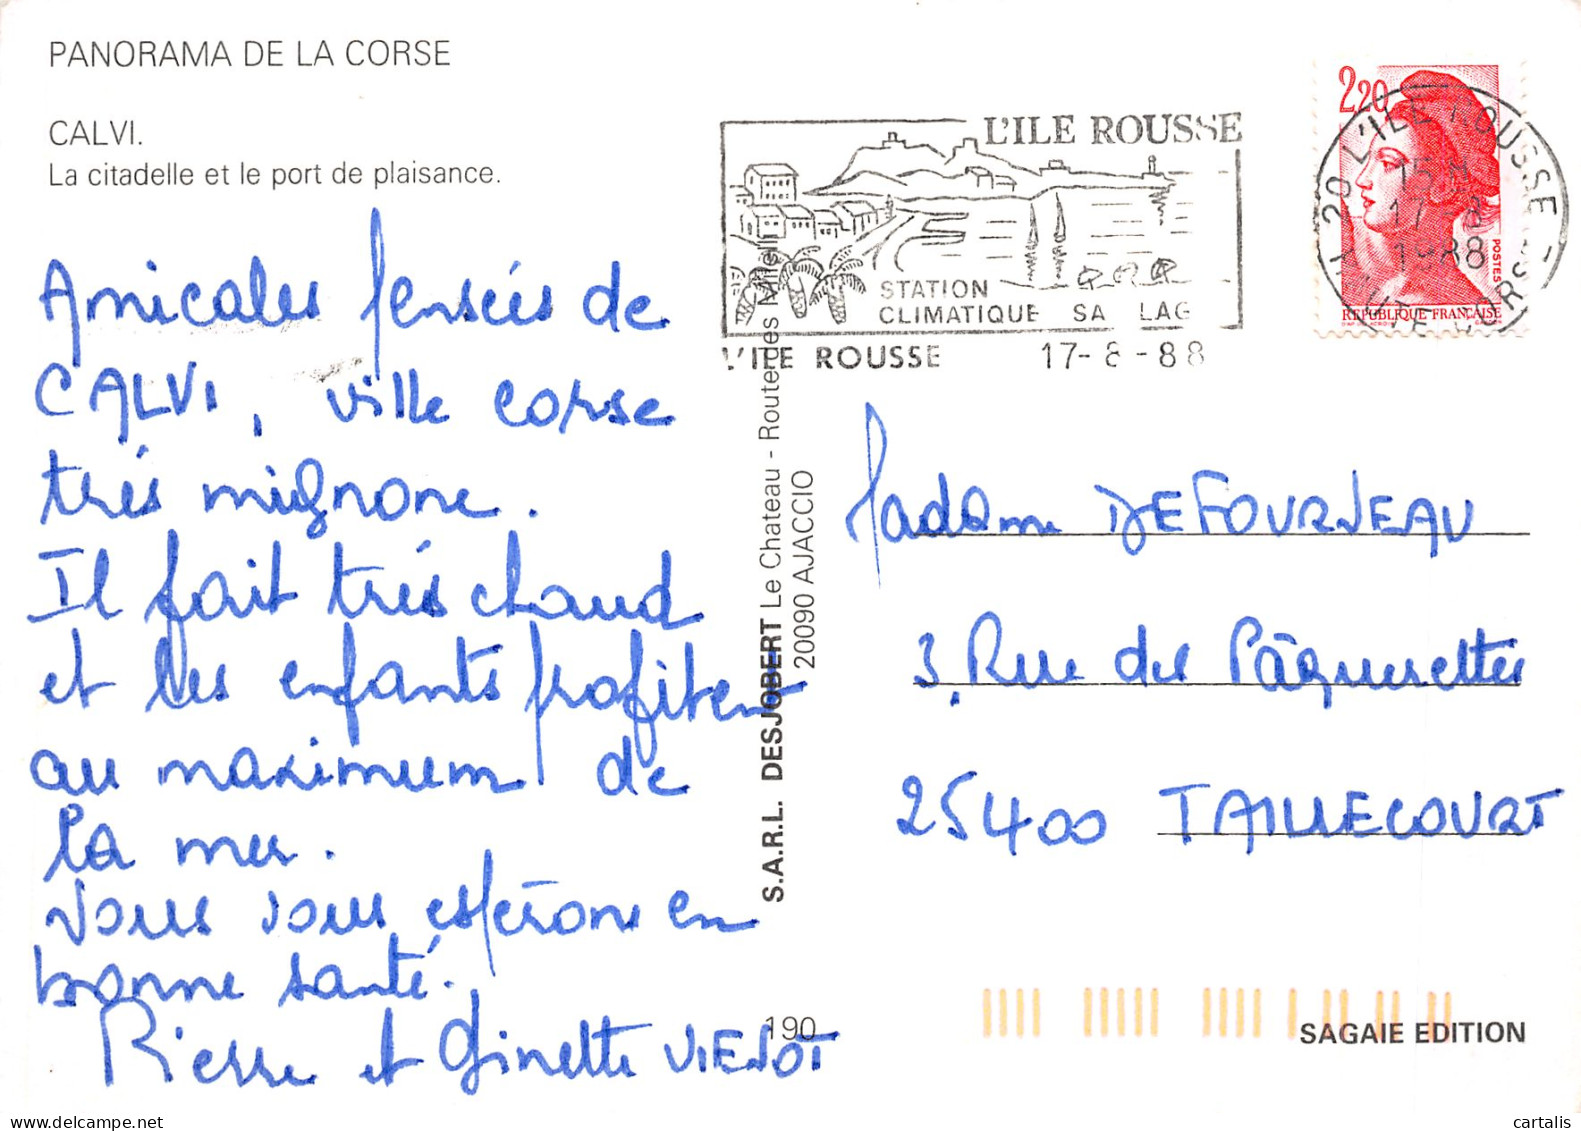 PANORAMA DE LA CORSE
CALVI.
La citadelle et le port de plaisance.
Amicales pensées de
CALVI, ville corse
trés mignone.
Il fait trés chaud
et les enfants profitent
au maximum de
la mer.
Vous vous espérons en
bonne santé.
Pierre et Ginette VIENOT
L'ILE ROUSSE
STATION
CLIMATIQUE SA LAG
L'ILE ROUSSE 17-8-88
2,20
POSTES
REPUBLIQUE FRANÇAISE
20 L'ILE ROUSSE
15 H
17-8
1988
HAUTE-CORSE
S.A.R.L. DESJOBERT Le Chateau - Route des Milelli
20090 AJACCIO
Madame DEFOURNEAU
3, Rue des Pâquerettes
25400 TAILLECOURT
190
SAGAIE EDITION
cartalis